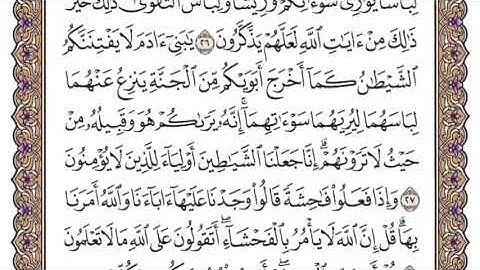 لِبَاسًا يُوَٰرِي سَوْءَٰتِكُمْ وَرِيشًا وَلِبَاسُ ٱلتَّقْوَىٰ ذَٰلِكَ خَيْرٌ
ذَٰلِكَ مِنْ ءَايَٰتِ ٱللَّهِ لَعَلَّهُمْ يَذَّكَّرُونَ ٢٦ يَٰبَنِيٓ ءَادَمَ لَا يَفْتِنَنَّكُمُ
ٱلشَّيْطَٰنُ كَمَآ أَخْرَجَ أَبَوَيْكُم مِّنَ ٱلْجَنَّةِ يَنزِعُ عَنْهُمَا
لِبَاسَهُمَا لِيُرِيَهُمَا سَوْءَٰتِهِمَآ إِنَّهُۥ يَرَىٰكُمْ هُوَ وَقَبِيلُهُۥ مِنْ
حَيْثُ لَا تَرَوْنَهُمْ إِنَّا جَعَلْنَا ٱلشَّيَٰطِينَ أَوْلِيَآءَ لِلَّذِينَ لَا يُؤْمِنُونَ
٢٧ وَإِذَا فَعَلُوا۟ فَٰحِشَةً قَالُوا۟ وَجَدْنَا عَلَيْهَآ ءَابَآءَنَا وَٱللَّهُ أَمَرَنَا
بِهَا قُلْ إِنَّ ٱللَّهَ لَا يَأْمُرُ بِٱلْفَحْشَآءِ أَتَقُولُونَ عَلَى ٱللَّهِ مَا لَا تَعْلَمُونَ